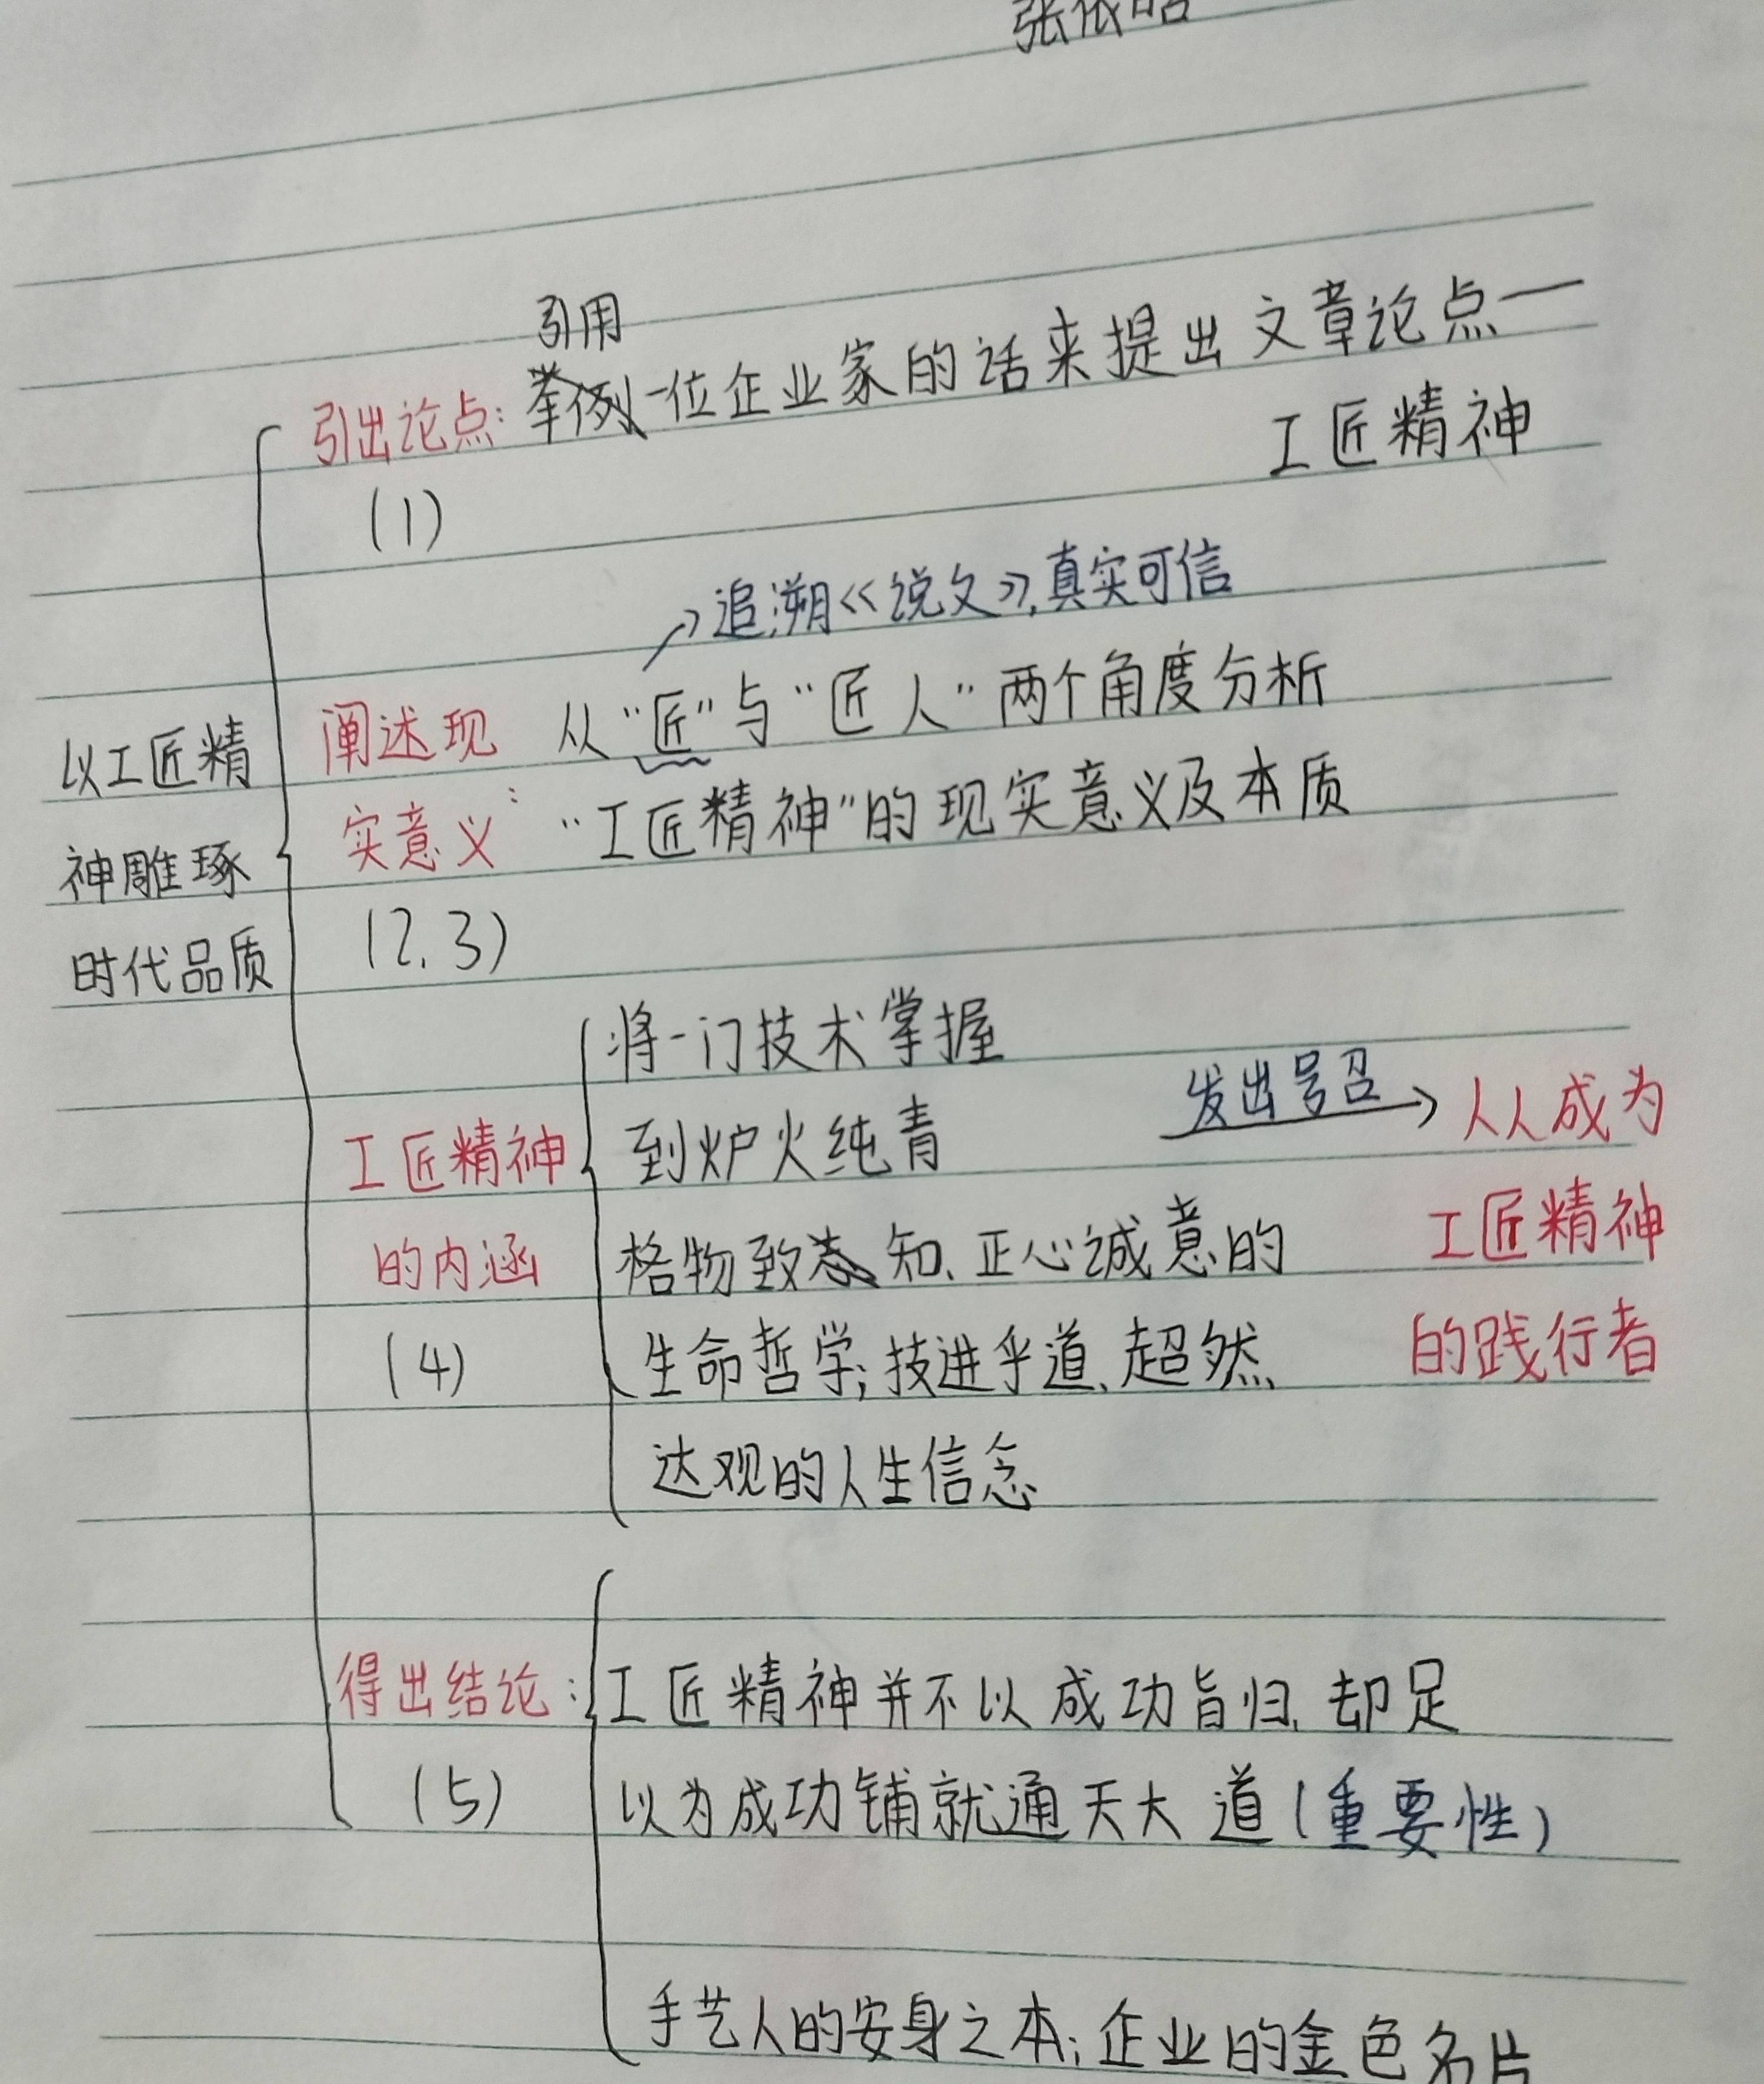 张依
引用
引出论点：一位企业家的话来提出文章论点一
工匠精神
(1)
追溯《说文》，真实可信
阐述现 从“匠”与“匠人”两个角度分析
以工匠精
实意义：“工匠精神”的现实意义及本质
神雕琢
(2、3)
时代品质
将一门技术掌握
发出号召 人人成为
工匠精神 到炉火纯青
的内涵 格物致知、正心诚意的 工匠精神
(4) 生命哲学；技进乎道、超然 的践行者
达观的人生信念
得出结论：工匠精神并不以成功旨归，却足
(5) 以为成功铺就通天大道(重要性)
手艺人的安身之本；企业的金色名片